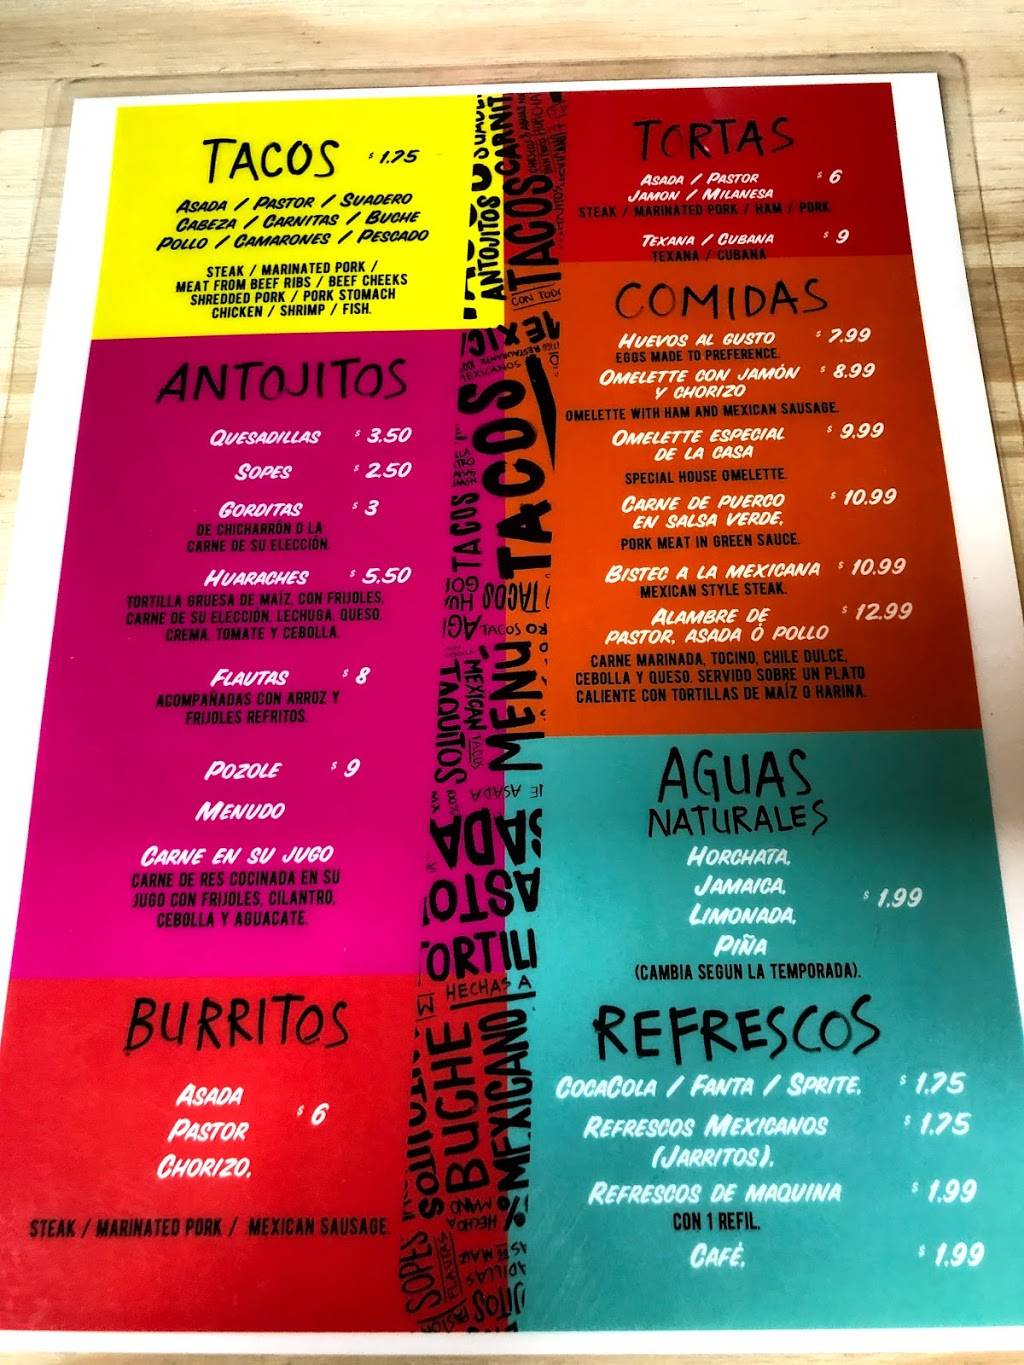 TACOS $ 1.75
ASADA / PASTOR / SUADERO
CABEZA / CARNITAS / BUCHE
POLLO / CAMARONES / PESCADO
STEAK / MARINATED PORK /
MEAT FROM BEEF RIBS / BEEF CHEEKS
SHREDDED PORK / PORK STOMACH
CHICKEN / SHRIMP / FISH.
ANTOJITOS
QUESADILLAS $ 3.50
SOPES $ 2.50
GORDITAS $ 3
DE CHICHARRÓN O LA
CARNE DE SU ELECCIÓN.
HUARACHES $ 5.50
TORTILLA GRUESA DE MAÍZ, CON FRIJOLES,
CARNE DE SU ELECCIÓN, LECHUGA, QUESO,
CREMA, TOMATE Y CEBOLLA.
FLAUTAS $ 8
ACOMPAÑADAS CON ARROZ Y
FRIJOLES REFRITOS.
POZOLE $ 9
MENUDO
CARNE EN SU JUGO
CARNE DE RES COCINADA EN SU
JUGO CON FRIJOLES, CILANTRO,
CEBOLLA Y AGUACATE.
BURRITOS
ASADA
PASTOR $ 6
CHORIZO.
STEAK / MARINATED PORK / MEXICAN SAUSAGE.
ANTOJITOS
TACOS
CON TODO
TACOS
TACOS
MENÚ
MEXICAN
TACOS
ASADA
HECHAS A
BUCHE
MEXICANO
SOPES
FLAUTAS
TORTAS
ASADA / PASTOR $ 6
JAMON / MILANESA
STEAK / MARINATED PORK / HAM / PORK.
TEXANA / CUBANA $ 9
TEXANA / CUBANA
COMIDAS
HUEVOS AL GUSTO $ 7.99
EGGS MADE TO PREFERENCE.
OMELETTE CON JAMÓN $ 8.99
Y CHORIZO
OMELETTE WITH HAM AND MEXICAN SAUSAGE.
OMELETTE ESPECIAL $ 9.99
DE LA CASA
SPECIAL HOUSE OMELETTE.
CARNE DE PUERCO $ 10.99
EN SALSA VERDE,
PORK MEAT IN GREEN SAUCE.
BISTEC A LA MEXICANA $ 10.99
MEXICAN STYLE STEAK.
ALAMBRE DE $ 12.99
PASTOR, ASADA Ó POLLO
CARNE MARINADA, TOCINO, CHILE DULCE,
CEBOLLA Y QUESO. SERVIDO SOBRE UN PLATO
CALIENTE CON TORTILLAS DE MAÍZ O HARINA.
AGUAS
NATURALES
HORCHATA,
JAMAICA, $ 1.99
LIMONADA,
PIÑA
(CAMBIA SEGUN LA TEMPORADA).
REFRESCOS
COCACOLA / FANTA / SPRITE. $ 1.75
REFRESCOS MEXICANOS $ 1.75
(JARRITOS).
REFRESCOS DE MAQUINA $ 1.99
CON 1 REFIL.
CAFÉ. $ 1.99